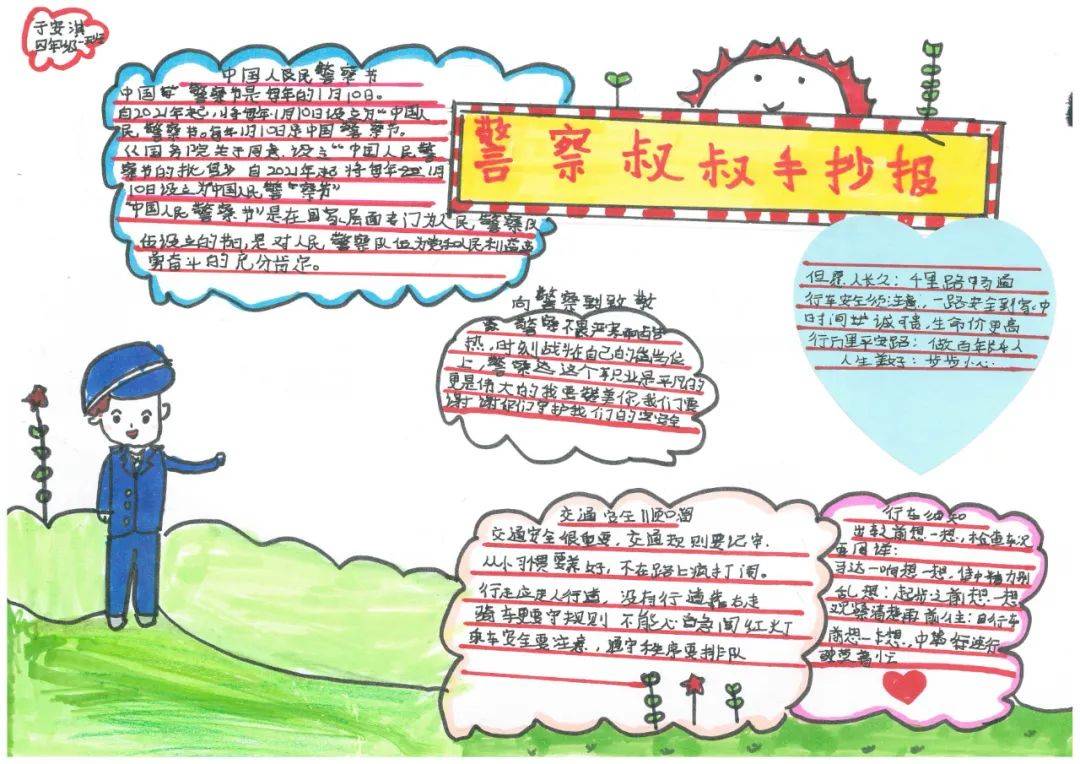 于安淇
四年级一班
警察叔叔手抄报
中国人民警察节
中国 警察节是每年的1月10日。
自2021年起,将每年1月10日设立为“中国人
民警察节。每年1月10日是中国警察节。
《国务院关于同意设立“中国人民警
察节的批复》自2021年起将每年 1月
10日设立为“中国人民警察节”
“中国人民警察节”是在国家层面专门为人民警察队
伍设立的节日,是对人民警察队伍为党和人民利益
奋斗的充分肯定。
向警察 致敬
警察不畏严寒 
热,时刻战 在自己的 岗位
上,警察 这个职业是平凡的
更是伟大的我要 你,我们要
谢谢你们守护我们的 安全
但愿人长久:千里路畅通
行车安全 注意,一路安全到家中
时间 诚 贵,生命价更高
行万里平安路:做百年 人
人生美好:步步小心
交通安全顺口溜
交通安全很重要,交通规则要记牢.
从小习惯要养好,不在路上疯打闹。
行走应走人行道,没有行道靠右走
骑车更要守规则 不能心急闯红灯
乘车安全要注意,遵守秩序要排队
行车 知
出 前想一想,检查车况
再周详:
想一想,集中精力别
乱想:起步之前想一想
观察清楚再前往:自行车
前想一想,